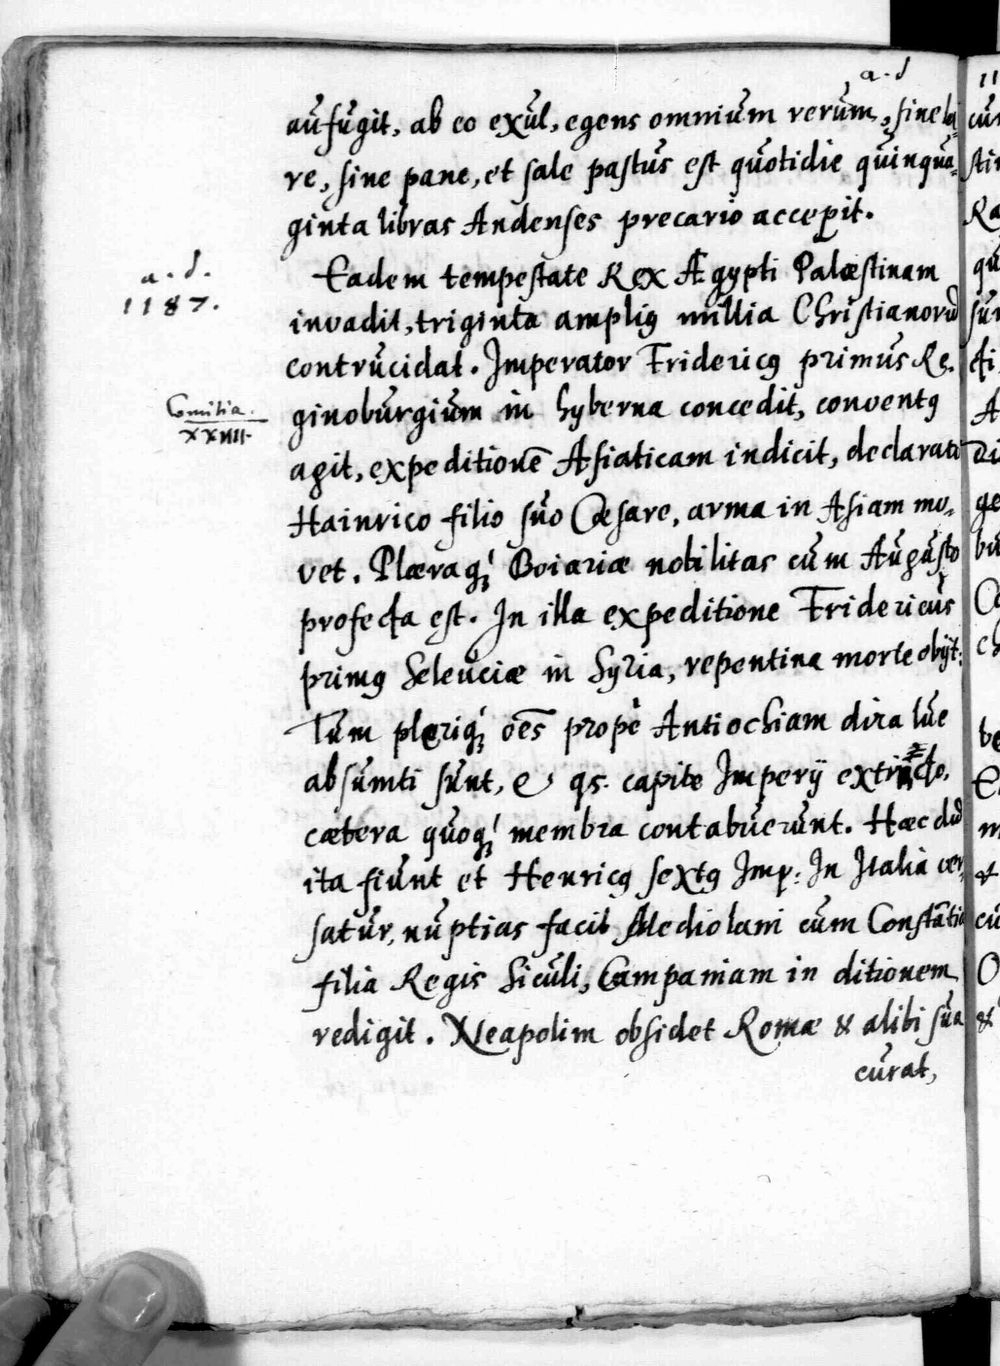 a. d
aufugit, ab eo exul, egens omnium rerum, sine la=
re, sine pane, et sale pastus est quotidie quinqua=
ginta libras Andenses precario accepit.
a. d.
1187.
Eadem tempestate Rex Ægypti Palæstinam
invadit, triginta ampliꝰ millia Christianorū
contrucidat. Imperator Fridericꝰ primus Re.
Comitia.
XXIIII.
ginoburgium in hyberna concedit, conventꝰ
agit, expeditionē Asiaticam indicit, declarato
Hainrico filio suo Cæsare, arma in Asiam mo=
vet. Plæraqꝫ Boiariæ nobilitas cum Augusto
profecta est. In illa expeditione Fridericus
primꝰ Seleuciæ in Syria, repentina morte obijt:
Tum plæriqꝫ oēs propè Antiochiam dira lue
absumti sunt, & qs. capite Imperij extincto,
cætera quoqꝫ membra contabuerunt. Hæc dū
ita fiunt et Henricꝰ sextꝰ Imp: In Italia ver=
satur, nuptias facit Mediolani cum Constātia
filia Regis Siculi, Campaniam in ditionem
redigit. Neapolim obsidet Romæ & alibi sua
curat,